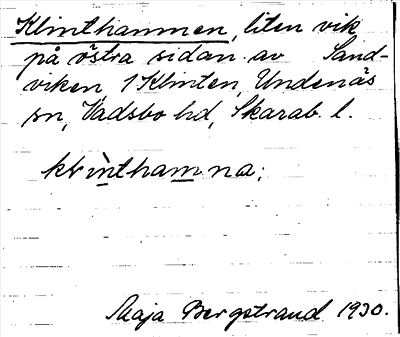 Klinthamnen, liten vik
på östra sidan av Sand-
viken, 1 Klinten, Undenäs
sn, Vadsbo hd, Skarab. l.
klìnthamna;
Maja Bergstrand 1930.